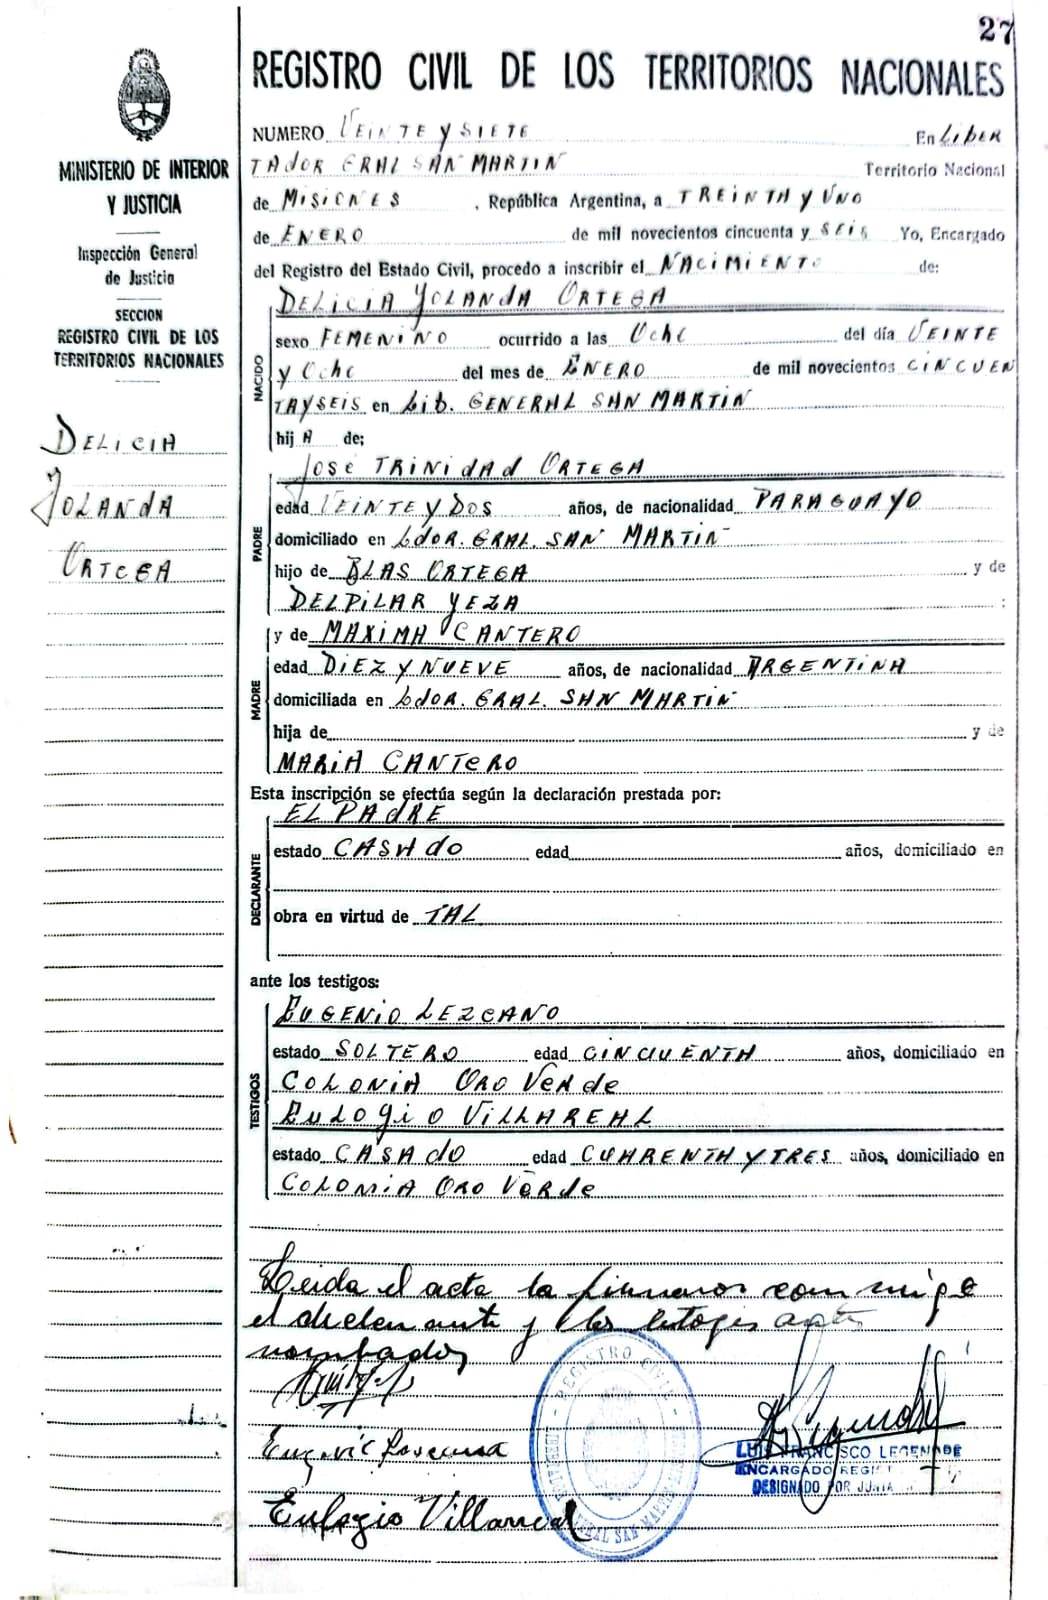 27
REGISTRO CIVIL DE LOS TERRITORIOS NACIONALES
MINISTERIO DE INTERIOR
Y JUSTICIA
Inspección General
de Justicia
SECCION
REGISTRO CIVIL DE LOS
TERRITORIOS NACIONALES
DELICIA
YOLANDA
ORTEGA
NUMERO VEINTE Y SIETE En LIBER
TADOR GRAL SAN MARTIN Territorio Nacional
de MISIONES , República Argentina, a TREINTA Y UNO
de ENERO de mil novecientos cincuenta y SEIS Yo, Encargado
del Registro del Estado Civil, procedo a inscribir el NACIMIENTO de:
NACIDO
DELICIA YOLANDA ORTEGA
sexo FEMENINO ocurrido a las OCHO del día VEINTE
Y OCHO del mes de ENERO de mil novecientos CINCUEN
TAYSEIS en Lib. GENERAL SAN MARTIN
hij A de;
PADRE
JOSE TRINIDAD ORTEGA
edad VEINTE Y DOS años, de nacionalidad PARAGUAYO
domiciliado en Ldor. GRAL. SAN MARTIN
hijo de BLAS ORTEGA y de
DELPILAR YEZA :
MADRE
y de MAXIMA CANTERO
edad DIEZ Y NUEVE años, de nacionalidad ARGENTINA
domiciliada en Ldor. GRAL. SAN MARTIN
hija de y de
MARIA CANTERO
Esta inscripción se efectúa según la declaración prestada por:
DECLARANTE
EL PADRE
estado CASADO edad años, domiciliado en
obra en virtud de TAL
ante los testigos:
TESTIGOS
EUGENIO LEZCANO
estado SOLTERO edad CINCUENTA años, domiciliado en
COLONIA ORO VERDE
EULOGIO VILLAREAL
estado CASADO edad CUARENTA Y TRES años, domiciliado en
COLONIA ORO VERDE
Leida el acta la firmaron conmigo
el declarante y los testigos antes
nombados
Eulogio Villarreal
REGISTRO CIVIL
GENERAL SAN MARTIN
LUIS FRANCISCO LEGENDRE
ENCARGADO REGIS
DESIGNADO POR JUNTA